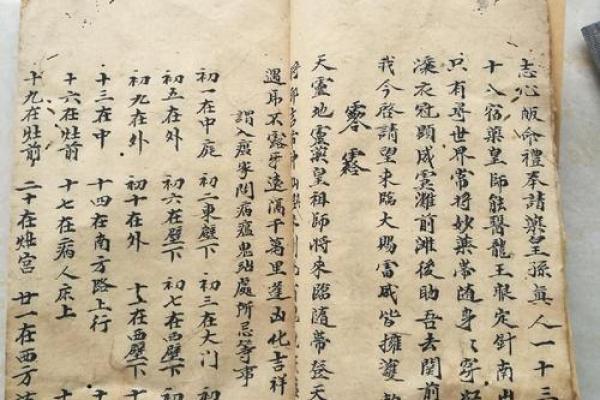 志心皈命禮奉請藥皇孫真人一十三
十八宿藥皇師能醫龍王聚定針南山
只有尋世界常將妙藥帶随身
衣冠顕威雲灘前灘後助吾去閗前
我今啓請望來臨大賜雷威皆擁護
天靈地靈藥皇祖師將來臨随帶登天
遇耳不露牙遠滿千萬里逢凶化吉祥
謂入家問病瘟鬼站處所忌等事
初一在中庭 初二東壁下 初三在大门 初
初五在外 初六在壁下 初七在西壁下 初
初九在外 初十在外 十一在西壁下 十
十三在中 十四在南方路上行 十
十六在灶前 十七在病人床上 十
十九在灶前 二十在灶宫 廿一在西方